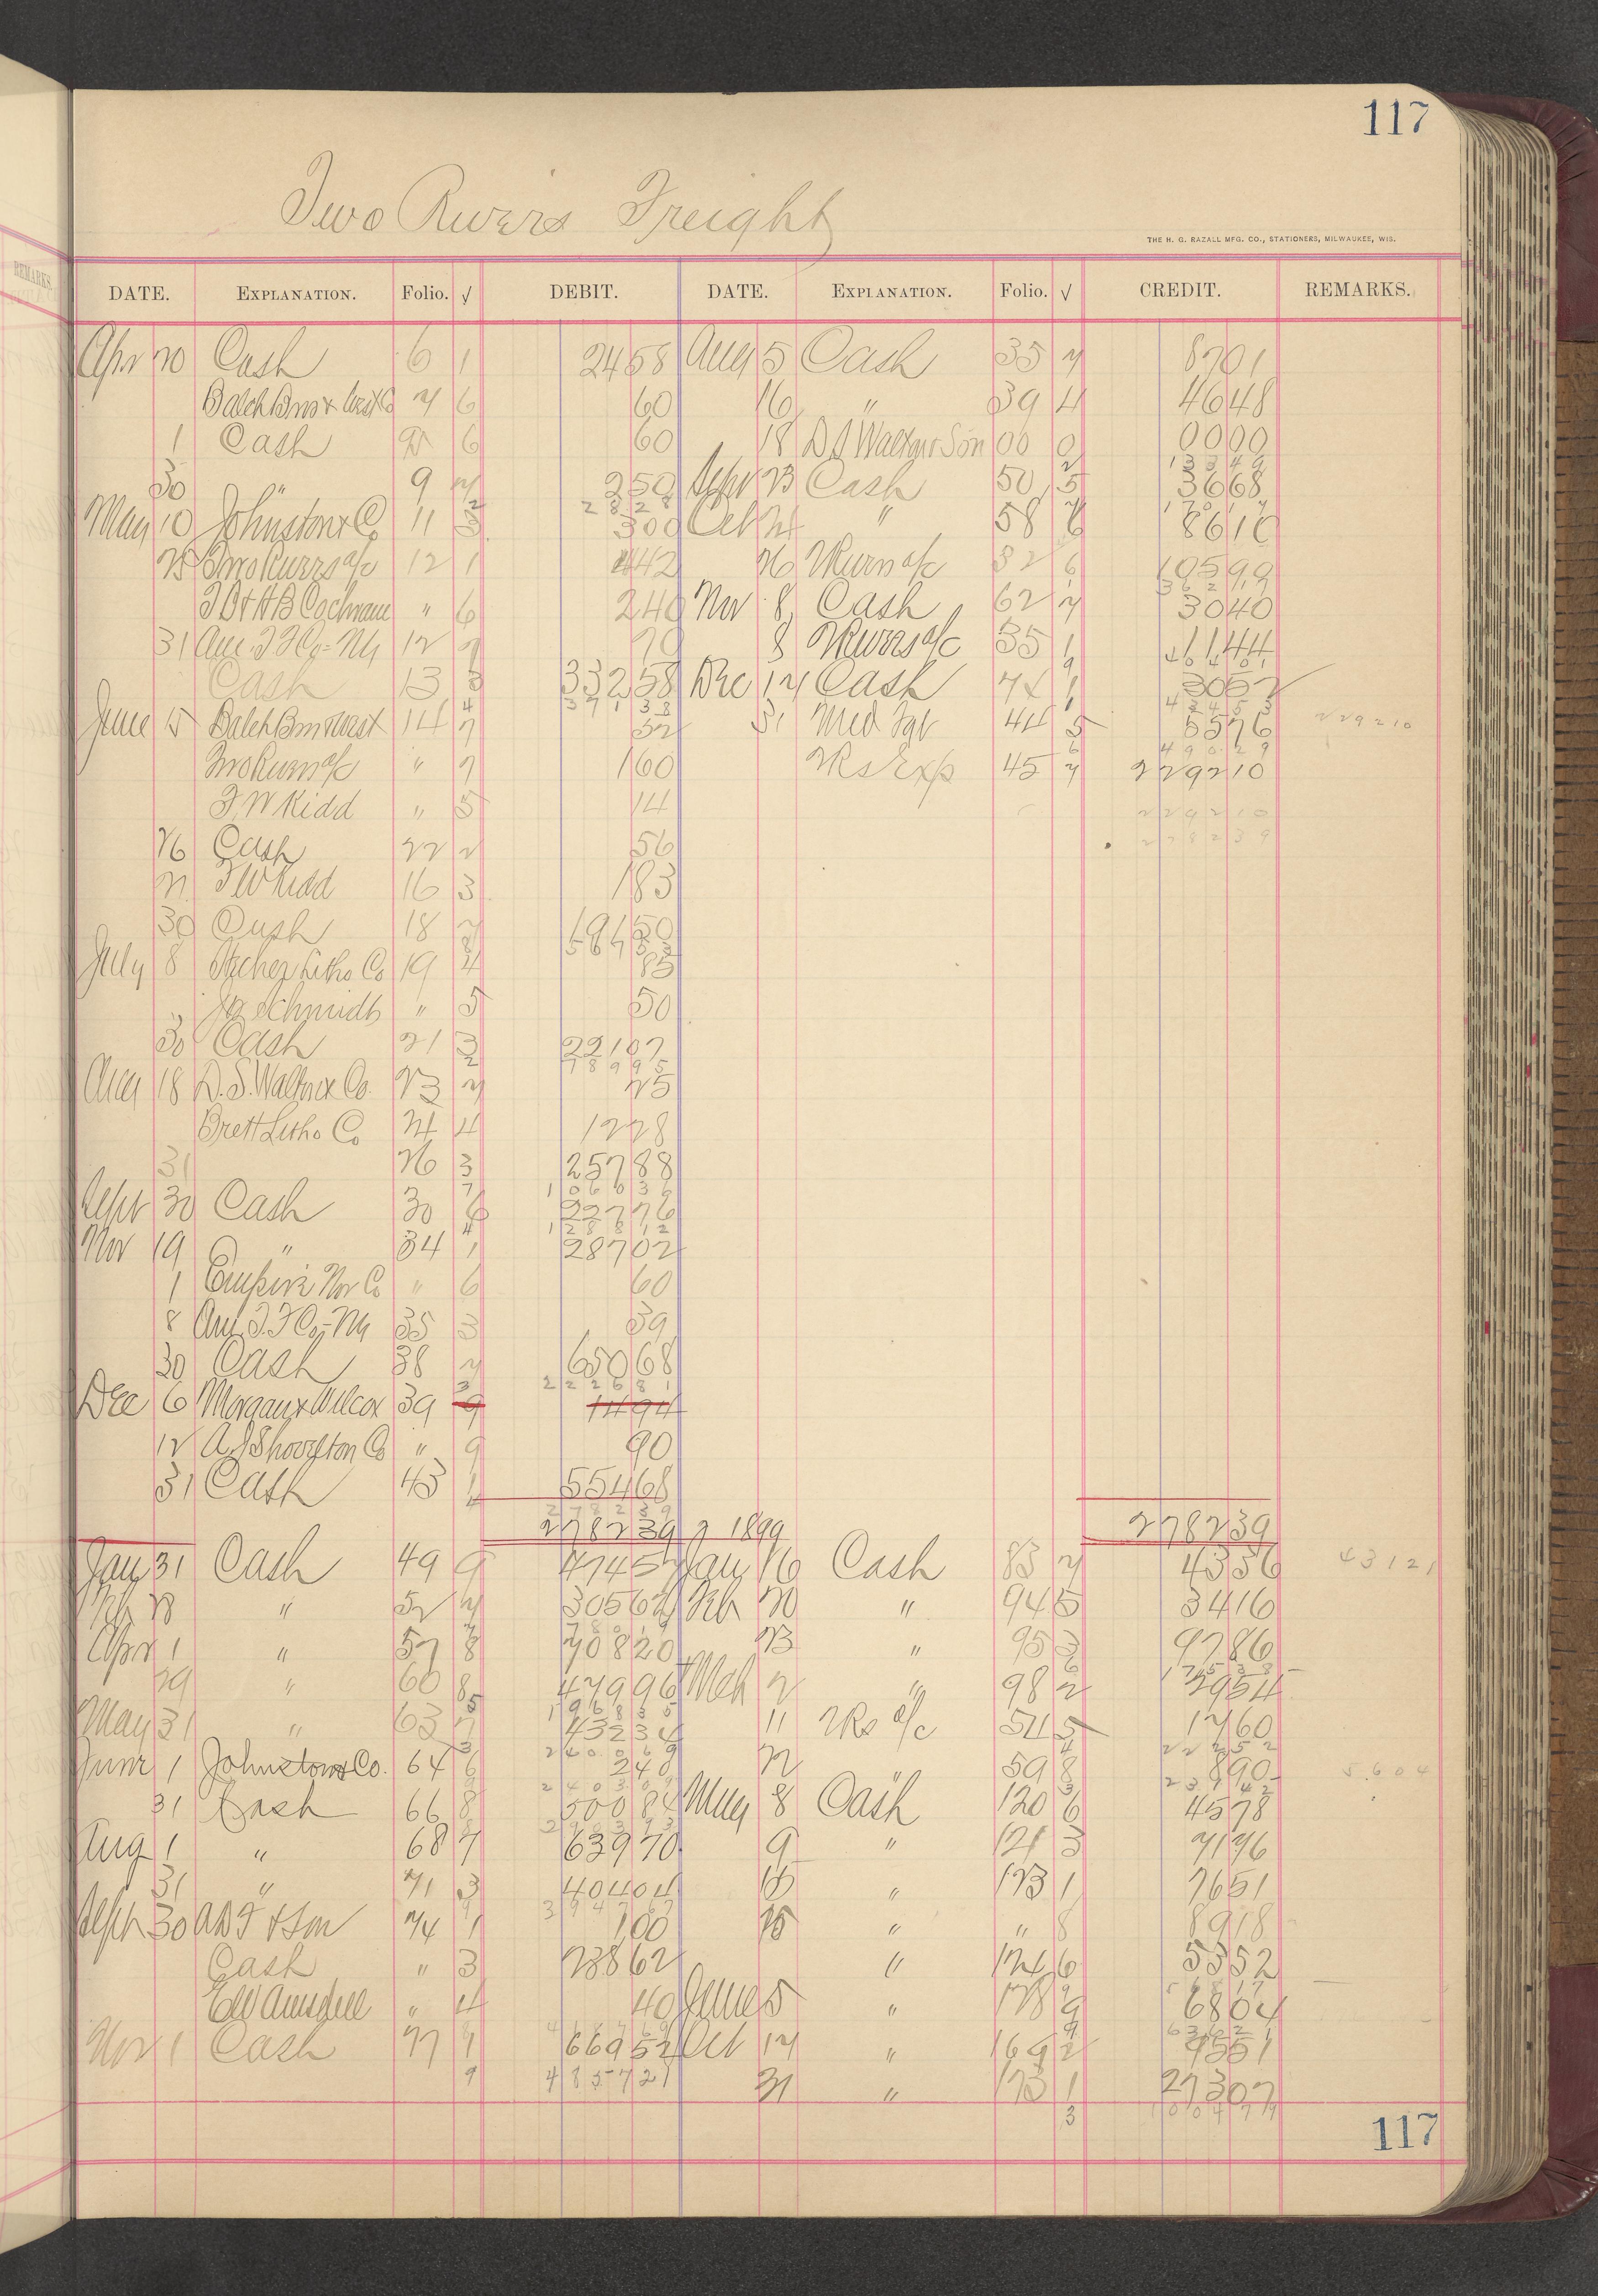 117
Two Rivers Freight
THE H. G. RAZALL MFG. CO., STATIONERS, MILWAUKEE, WIS.
DATE. EXPLANATION. Folio. √ DEBIT. DATE. EXPLANATION. Folio. √ CREDIT. REMARKS.
Apr 20 Cash 6 1 2458 Aug 5 Cash 35 7 8701
Balch Bros & West Co 7 6 60 16 " 39 4 4648
1 Cash 6 60 18 D S Walton & Son 00 0 0000
2 13349
30 " 9 7 250 Sept 23 Cash 50 5 3668
2 2828
May 10 Johnston & Co 11 3 300 Oct 24 " 58 6 8610
25 Two Rivers a/c 12 1 442 26 2 Rivers a/c 32 6 10599
36 2
T B & H B Cochrane " 6 240 Nov 8 Cash 62 7 3040
31 Am. T F Co - NY 12 9 70 8 2 Rivers a/c 35 1 1144
9 40401
Cash 13 3 33258 Dec 12 Cash 74 1 3052
4 37138 43453
June 5 Balch Bros & West 14 7 52 31 Med Fgt 44 5 5576 229210
6 49029
Two Rivers a/c " 7 160 2 Rs Exp 45 7 229210
F. W Kidd " 5 14 229210
278239
26 Cash 22 2 56
27 F W Kidd 16 3 183
30 Cash 18 7 19150
8 56753
July 8 Stecher Litho Co 19 4 85
" Schmidt " 5 50
30 Cash 21 3 22107
2 78995
Aug 18 D. S. Walton & Co. 23 7 25
Brett Litho Co 24 4 1228
31 26 3 25788
7 106036
Sept 30 Cash 30 6 22776
4 128812
Nov 19 " 34 1 28702
1 Empire Nov Co " 6 60
8 Am. T. F Co - NY 35 3 39
30 Cash 38 7 65068
3 222681
Dec 6 Morgan & Wilcox 39 9 1494
12 A J Shoveton Co " 9 90
31 Cash 43 1 55468
278239
278239 1899 278239
Jan 31 Cash 49 9 47457 Jan 26 Cash 83 7 4336 43121
Feb 28 " 52 7 30562 Feb 20 " 94 5 3416
Apr 1 " 57 8 70820 23 " 95 3 9786
29 " 60 8 47996 Mch 2 " 98 2 2954
5 196835
May 31 " 63 7 43234 11 2 Rs a/c 54 5 1760
3 240069 4 22252
June 1 Johnston & Co. 64 6 240 22 " 59 8 890 5604
240309 3 23142
31 Cash 66 8 50084 May 8 Cash 120 6 4578
290393
Aug 1 " 68 7 63970 9 " 121 3 7196
31 " 71 3 40404 15 " 123 1 7651
394767
Sept 30 A D F & Son 74 1 100 25 " " 8 8918
Cash " 3 23862 " 124 6 5352
Ed Amsdell " 4 40 June 5 " 128 9 6804
9 63621
Nov 1 Cash 77 1 66952 Oct 14 " 169 2 9551
9 485721 31 " 173 1 27307
3 100479
117